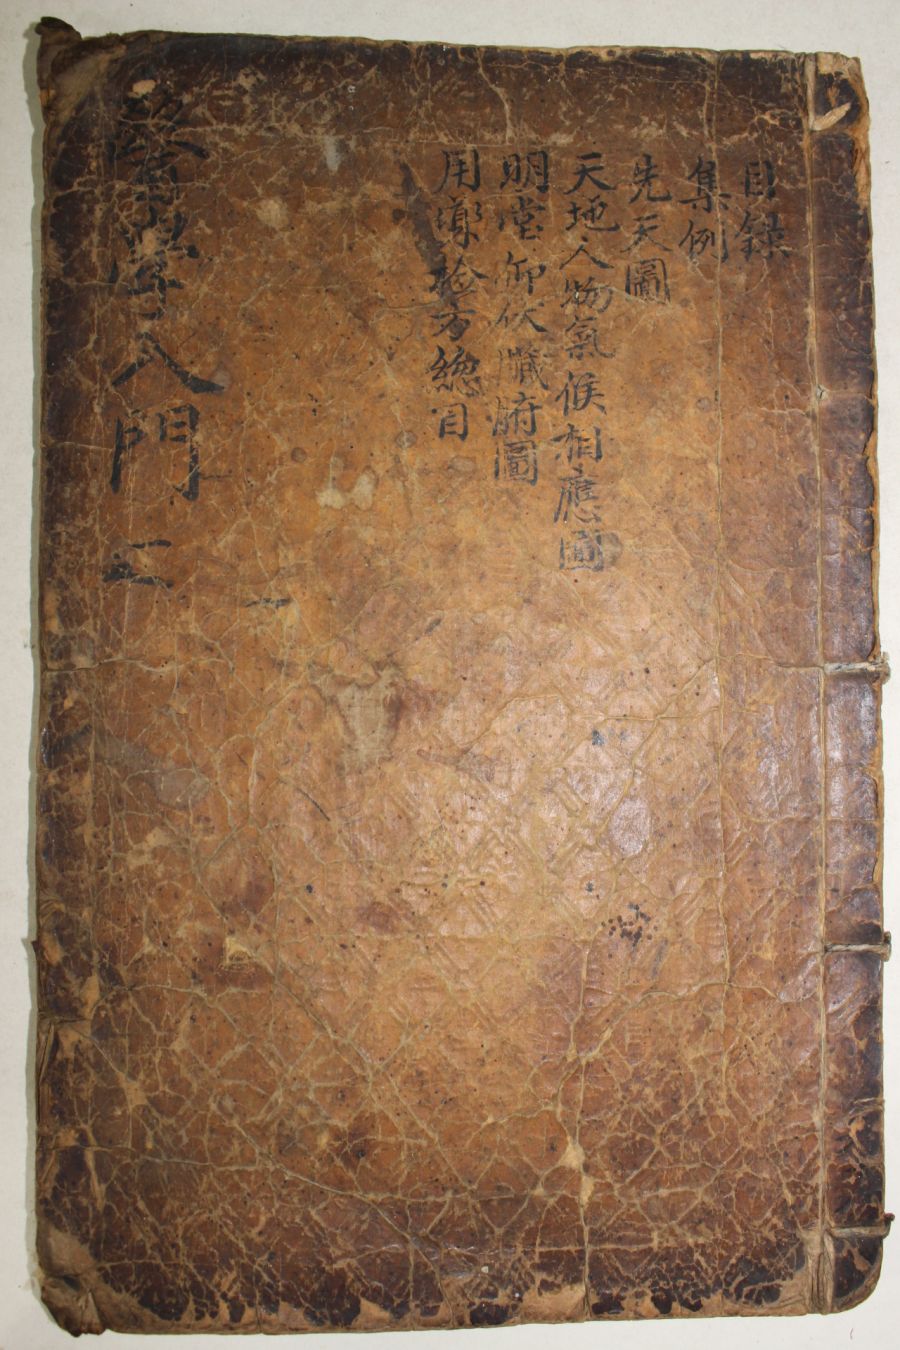 目錄
集例
先天圖
天地人物氣候相應圖
明堂仰伏臟腑圖
用藥檢方總目
醫學入門